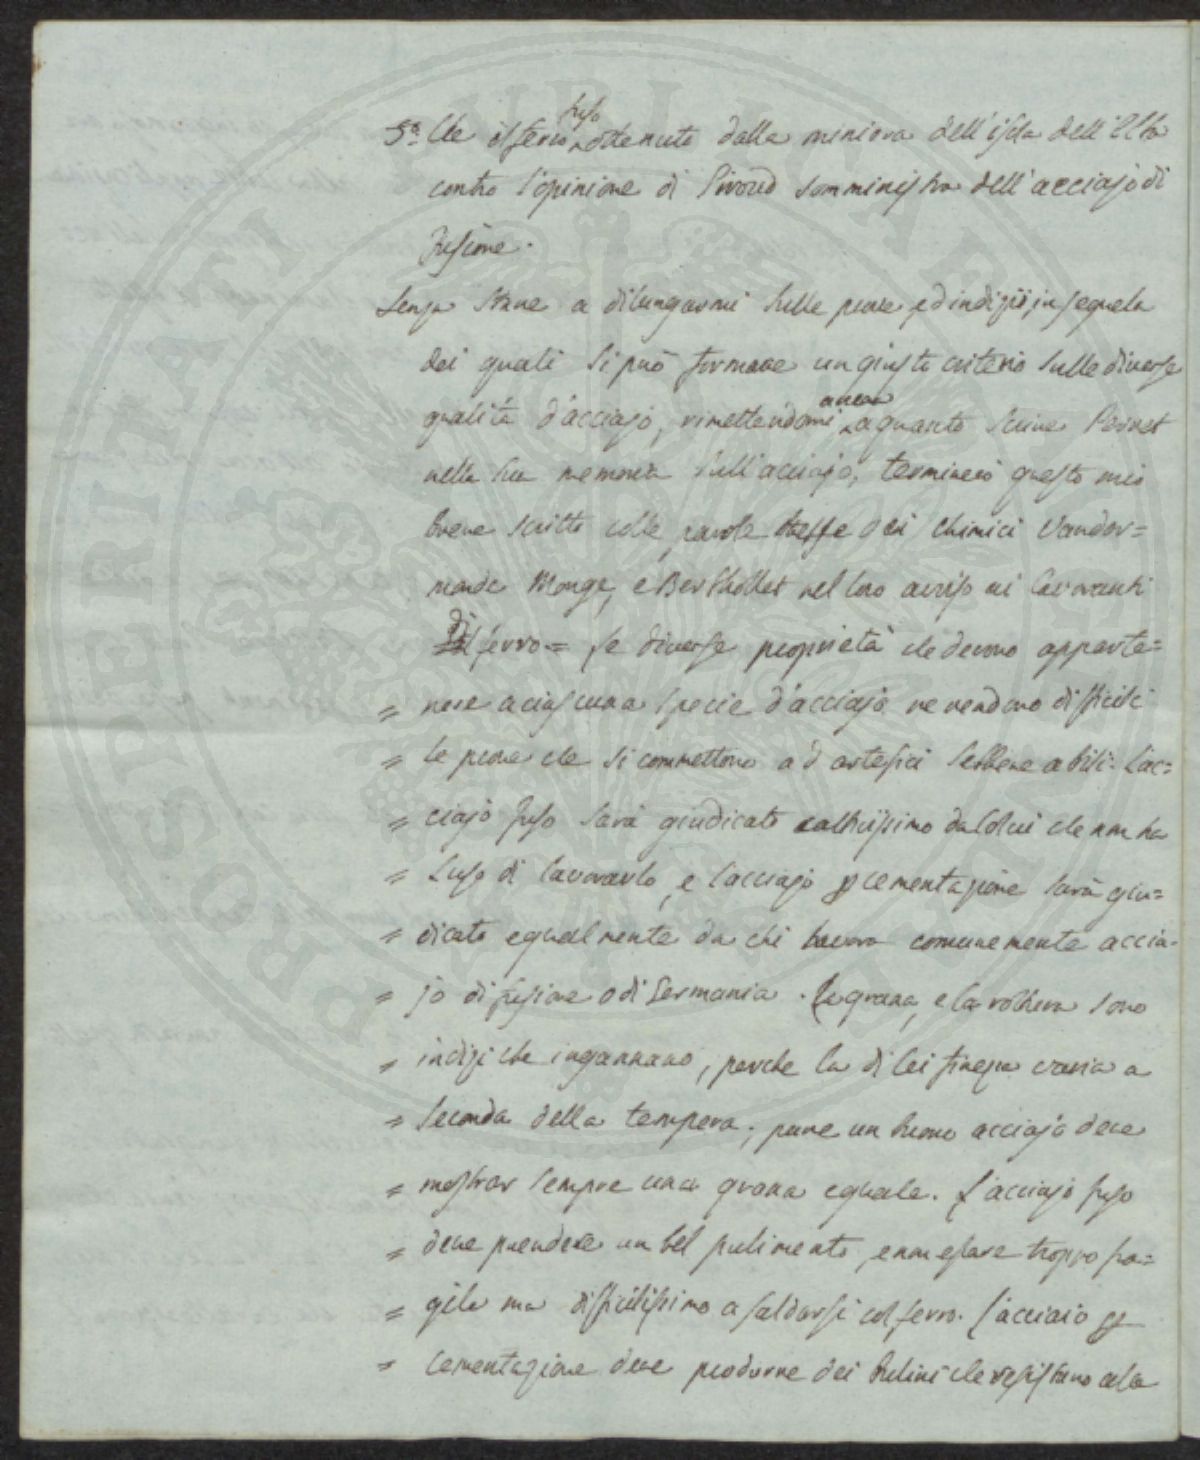 5.° Che il ferro fuso ottenuto dalla miniora dell'isola dell'Elba
contro l'opinione di somministra dell'acciajo di
fusione.
Senza stare a dilungarmi sulle prove, ed indizii, in sequela
dei quali si può formare un giusto criterio sulle diverse
qualità d'acciajo, rimettendomi ancora a quanto scrive Perret
nella sua memoria sull'acciajo, terminerò questo mio
breve scritto colle parole stesse dei chimici Vander=
monde Monge, e Berthollet nel loro aviso ai lavoranti
di ferro = Le diverse proprietà che devono apparte=
= nere a ciascuna specie d'acciajo ne rendono difficili
= le prove che si commettono ad artefici sebbene abili. L'ac=
= ciajo fuso sarà giudicato cattivissimo da colui che non ha
= l'uso di lavorarlo, e l'acciajo p cementazione sarà giu=
= dicato egualmente da chi lavora comunemente accia=
= jo di fusione o di Germania. La grana, e la sono
= indizi che ingannano, perche la di lei finezza varia a
= seconda della tempera; pure un buono acciajo deve
= mostrar sempre una grana eguale. L'acciajo fuso
= deve prendere un bel pulimento, e non essere troppo fra=
= gile ma difficilissimo a saldarsi col ferro. L'acciaio p
= cementazione deve produrre dei bulini che resistano alla
PROSPERITATI PUBLICAE AUGENDAE